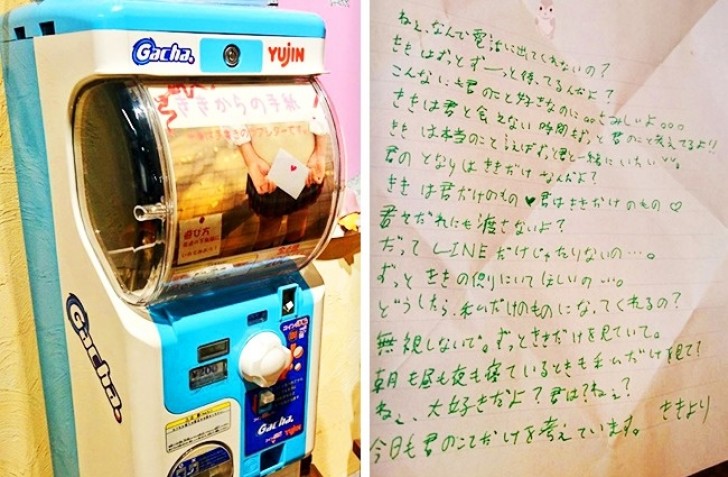 Gacha.
YUJIN
ききからの手紙
Gacha.
200
Gacha.
YUJIN
ねぇ、なんで電話に出てくれないの?
ききはずっとずーっと待ってるんだよ?
こんなにも君のこと好きなのに。。さみしいよ。。。
ききは君と会えない時間もずっと君のこと考えてるよ!!
ききは本当のこと言えばずっと君と一緒にいたい
君のとなりはききだけなんだよ?
ききは君だけのもの♥君はききだけのもの♡
君をだれにも渡さないよ?
だってLINEだけじゃたりないの…。
ずっとききの側りにいてほしいの…。
どうしたら、私だけのものになってくれるの?
無視しないで。ずっとききだけを見ていて。
朝も昼も夜も寝ているときも私だけを見て?
ねぇ、大好きだよ?君は?ねぇ?
今日も君のことだけを考えています。 ききより